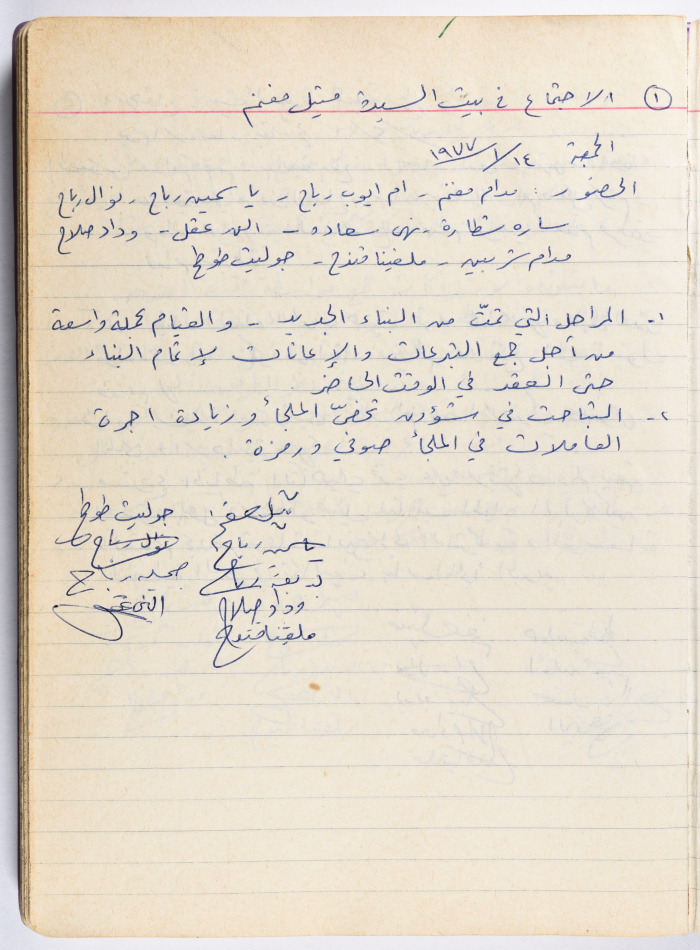 ١ الاجتماع في بيت السيدة ميتيل مغنم
الجمعة ١٤/١/١٩٧٧
الحضور: مدام مغنم - ام ايوب رباح - ياسمين رباح - نوال رباح
ساره شطارة - نهى سعاده - الن عقل - وداد صلاح
مدام شربين - ملفينا قندح - جوليت طوطح
١- المراحل التي تمتّ من البناء الجديد - والقيام بحملة واسعة
من أجل جمع التبرعات والإعانات لإتمام البناء
حتى العقد في الوقت الحاضر.
٢- التباحث في شؤون تخصّ الملجأ وزيادة اجرة
العاملات في الملجأ صوفي ورمزة.
جوليت طوطح
نوال رباح ياسمين رباح
جميله رباح بديعة رباح
وداد صلاح
ملفينا قندح